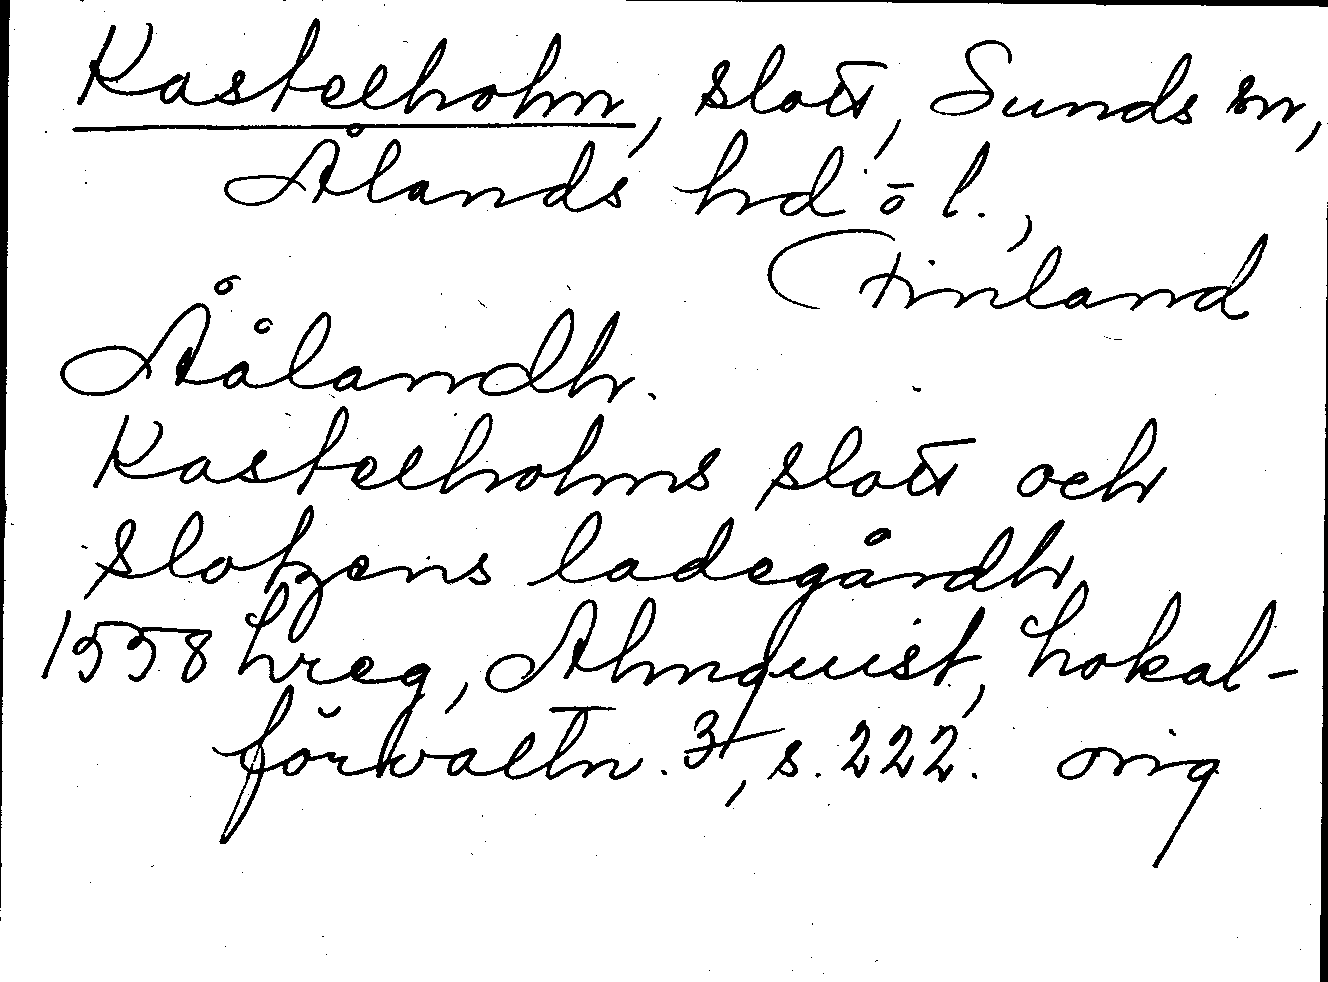 Kastelholm, slott, Sunds sn,
Ålands hd o l.,
Finland
Åålandh.
Kastelholms slott och
slotzens ladegårdh
1558 hreg, Almquist, Lokal-
förvaltn. 3, s. 222. orig